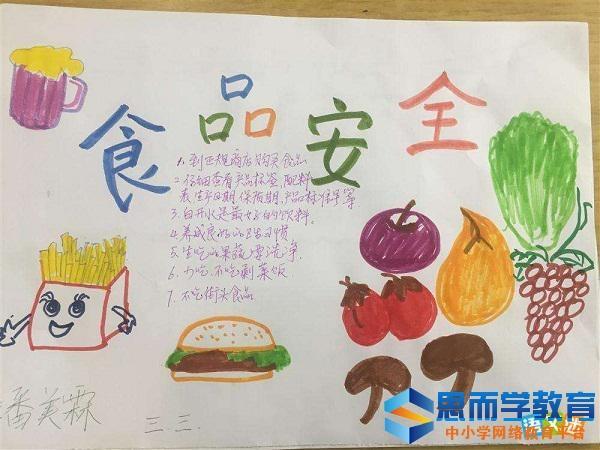 食品安全
1. 到正规商店购买食品
2. 仔细查看产品标签,配料
表生产日期,保质期,产品标准号等
3. 白开水是最好的饮料.
4. 养成良好的卫生习惯
5. 生吃瓜果蔬要洗净.
6. 少吃、不吃剩菜饭
7. 不吃街头食品
潘美霖
三.三.
思而学教育
中小学网络教育平台